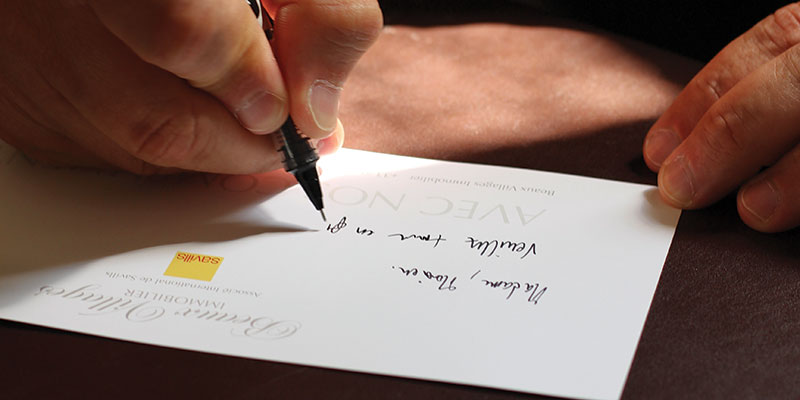 Beaux Villages
IMMOBILIER
Associé International de Savills
savills
Madame, Monsieur.
Veuillez trouver en
AVEC NO
Beaux Villages Immobilier